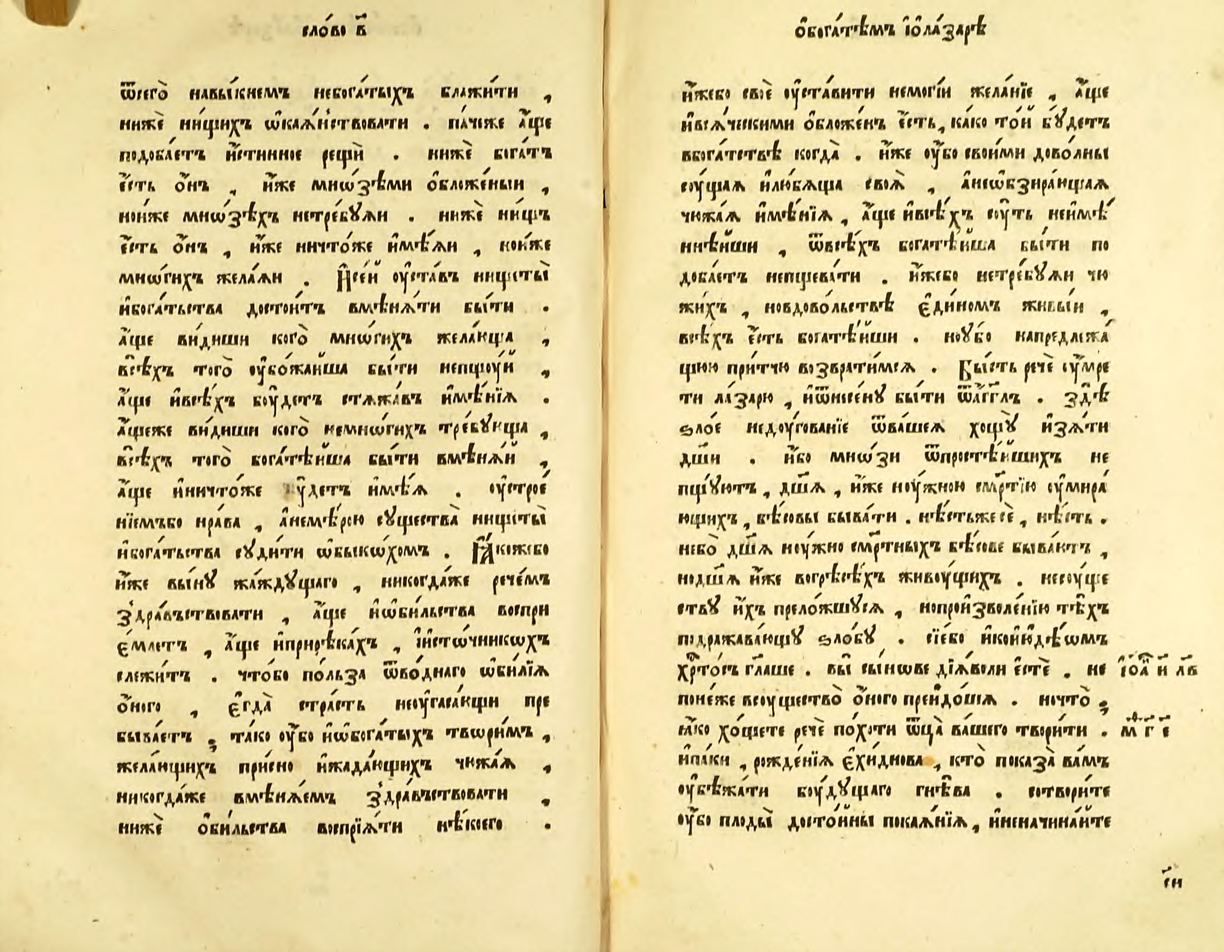 сло́во в҃
ѿсего̀ навы́кнемъ небога́тыхъ блажи́ти ,
нижѐ ни́щихъ ѡ҆кая́нствовати . па́чеже а҆́ще
подоба́етъ и҆́стинное рещѝ . нижѐ бога́тъ
є҆́сть ѻ҆́нъ , и҆́же мно́зѣми ѻ҆бложе́ныи ,
нои́же мно́зѣхъ нетре́бꙋѧи . нижѐ ни́щъ
є҆́сть ѻ҆́нъ , и҆́же ничто́же и҆мѣ́ѧи , нои́же
мно́гихъ жела́ѧи . И҆се́й ᲂу҆ста́въ нищеты̀
и҆бога́тьства досто́итъ вмѣнѧ́ти бы́ти .
а҆́ще ви́диши кого̀ мно́гихъ жела́юща ,
всѣ́хъ того̀ ᲂу҆бо́жаиша бы́ти непщꙋ́й ,
а҆́ще и҆всѣ́хъ бᲂу́детъ стѧжа́въ и҆мѣ́нїѧ .
а҆́щеже ви́диши кого̀ немно́гихъ тре́бꙋюща ,
всѣ́хъ того̀ богатѣ́йша бы́ти вмѣнѧ́й ,
а҆́ще и҆ничто́же бꙋ́детъ и҆мѣ́ѧ . ᲂу҆строе́
нїемъбо нра́ва , а҆немѣ́рою сꙋщества̀ нищеты̀
и҆бога́тьства сꙋди́ти ѡ҆быко́хомъ . Ꙗ҆́кожебо
и҆́же вы́нꙋ жа́ждꙋщаго , никогда́же рече́мъ
здра́въствовати , а҆́ще и҆ѡ҆би́льства воспри
е́млетъ , а҆́ще и҆прирѣка́хъ , и҆и҆сто́чникохъ
слежи́тъ . что́бо по́льза ѿво́днаго ѡ҆би́лїѧ
ѻ҆́ного , є҆гда̀ стра́сть неᲂу҆гаса́ющи пре
быва́етъ ; та́ко ᲂу҆́бо и҆ѡ҆бога́тыхъ твори́мъ ,
жела́ющихъ при́сно и҆жада́ющихъ чюжа́ѧ ,
никогда́же вмѣнѧ́емъ здра́въствовати ,
нижѐ ѻ҆би́льства воспрїѧ́ти нѣ́коего .
ѻ҆бога́тѣмъ і҆ѻ҆ла́зарѣ
и҆́жебо своѐ ᲂу҆ста́вити немогі́и жела́нїе , а҆́ще
и҆всѧ́ческими ѻ҆бложе́нъ є҆́сть , ка́ко то́й бꙋ́детъ
вбога́тствѣ когда̀ . и҆́же ᲂу҆́бо свои́ми дово́лны
сᲂу́щаѧ и҆лю́бѧща своѧ̀ , а҆неѡ҆бзира́ющаѧ
чюжа́ѧ и҆мѣ́нїѧ , а҆́ще и҆всѣ́хъ сᲂу́ть неимѣ́
ннѣ́йши , ѿвсѣ́хъ богатѣ́йша бы́ти по
доба́етъ непщева́ти . и҆́жебо нетре́бꙋѧи чю
жи́хъ , новдово́льствѣ є҆ди́номъ живы́и ,
всѣ́хъ є҆́сть богатѣ́йши . ноᲂу҆бо напредлежа́
щюю при́тчю возврати́мсѧ . Бы́сть речѐ ᲂу҆мре́
ти ла́зарю , и҆ѿнесе́нꙋ бы́ти ѿа҆́гг҃лъ . здѣ̀
ѕло́е недᲂу́гованїе ѿва́шеѧ хощꙋ̀ и҆зѧ́ти
дш҃и . и҆́бо мно́зи ѿпростѣ́йшихъ не
пщꙋ́ютъ , дш҃ѧ , и҆́же нꙋ́жною сме́ртїю ᲂу҆мира́
ющихъ , бѣ́совы быва́ти . нѣ́стьжесѐ , нѣ́сть .
небо̀ дш҃ѧ нᲂу́жно сме́ртныхъ бѣ́сове быва́ютъ ,
нодш҃ѧ и҆́же вогресѣ́хъ живᲂу́щихъ . несᲂу́ще
ствꙋ и҆́хъ прело́жшꙋсѧ , нопроизволе́нїю тѣ́хъ
подража́вающꙋ ѕло́бꙋ . сїе́бо и҆коі҆ꙋде́ѡмъ
хр҃то́съ гл҃аше . вы̀ сы́нове дїѧ́воли є҆стѐ . не
поне́же всᲂущество̀ ѻ҆́ного преидо́шѧ . ночто̀ ;
ꙗ҆́ко хо́щете речѐ по́хоти ѿц҃а̀ ва́шего твори́ти .
и҆па́ки , рожде́нїѧ є҆хи́днова , кто̀ показа̀ ва́мъ
ᲂу҆бѣжа́ти бᲂу́дущаго гнѣ́ва . сотвори́те
ᲂу҆́бо плоды̀ досто́йны покаѧ́нїѧ , и҆неначина́ите
і҆ѻа҃ и҃ лв
м҃ г҃ е҃
си